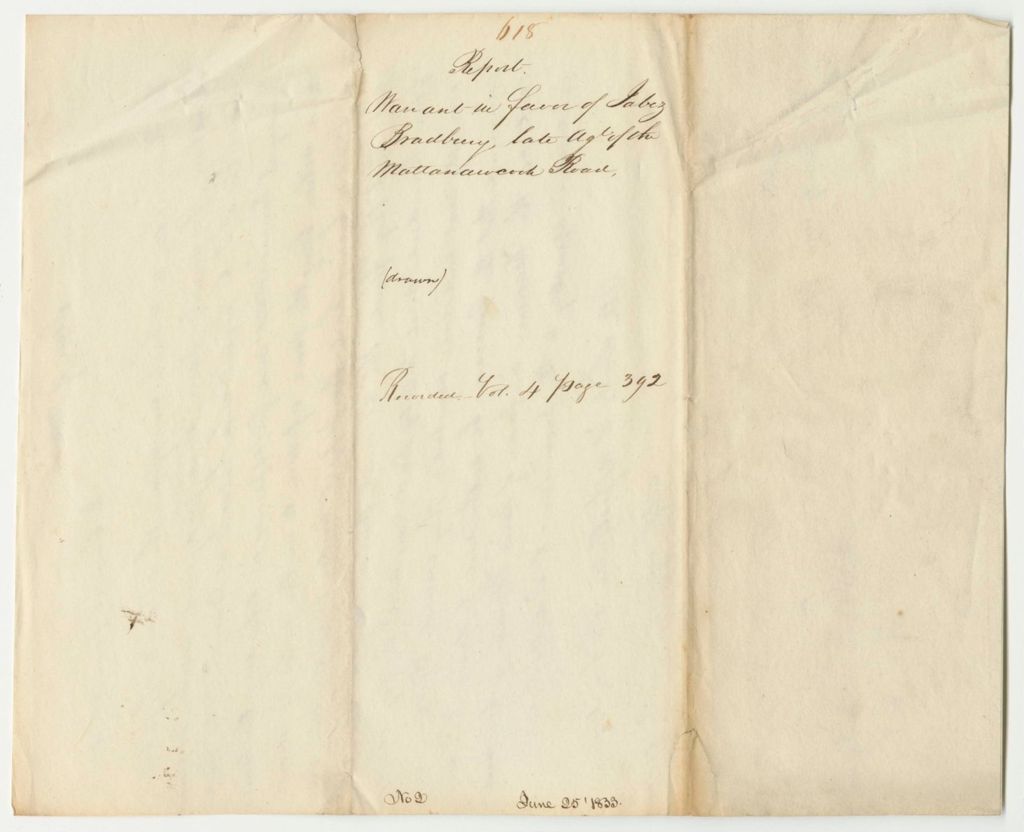 618
Report.
Warrant in favor of Jabez
Bradbury, late Agt of the
Mattanawcook Road,
(drawn)
Recorded Vol. 4 page 392
No 2 June 25 1833.